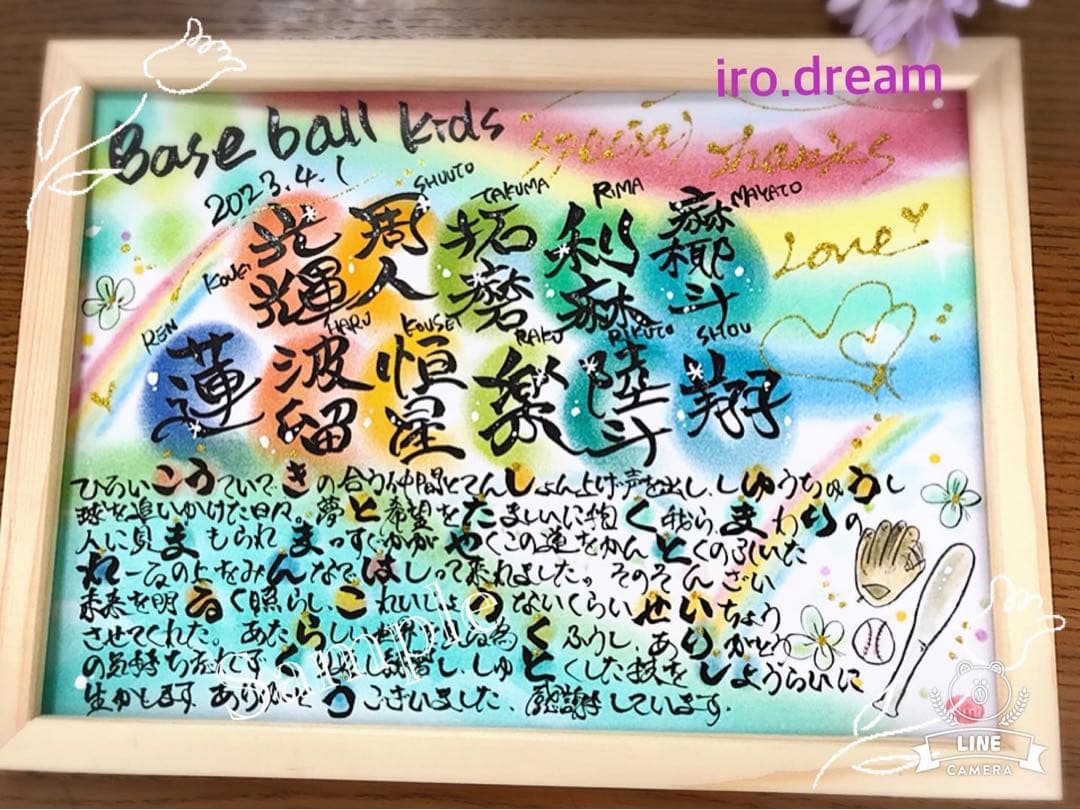 iro.dream
Base ball kids
special thanks
2023.4.1
SHUUTO
TAKUMA
RIMA
MAYATO
KOUKI
光輝
周人
拓磨
利麻
麻椰斗
Love
REN
HARU
KOUSEI
RAKU
RIKUTO
SHOU
蓮
波留
恒星
楽
陸斗
翔
ひろいこうていで、きの合う仲間とてんしょん上げ、声を出し、しゅうちゅうし
球を追いかけた日々。夢と希望をたましいに抱く我ら、まわりの
人に見まもられまっすぐかがやくこの道をかんとくのふいた
れーるの上をみんなではしって来れました。そのそんざい
未来を明るく照らし、これいじょうないくらいせいちょう
させてくれた。あたらしい
くふうし、ありがとう
の気持ち忘れず
し、しゅとくした技をしょうらいに
生かします ありがとうございました、感謝しています。
Sample
LINE
CAMERA